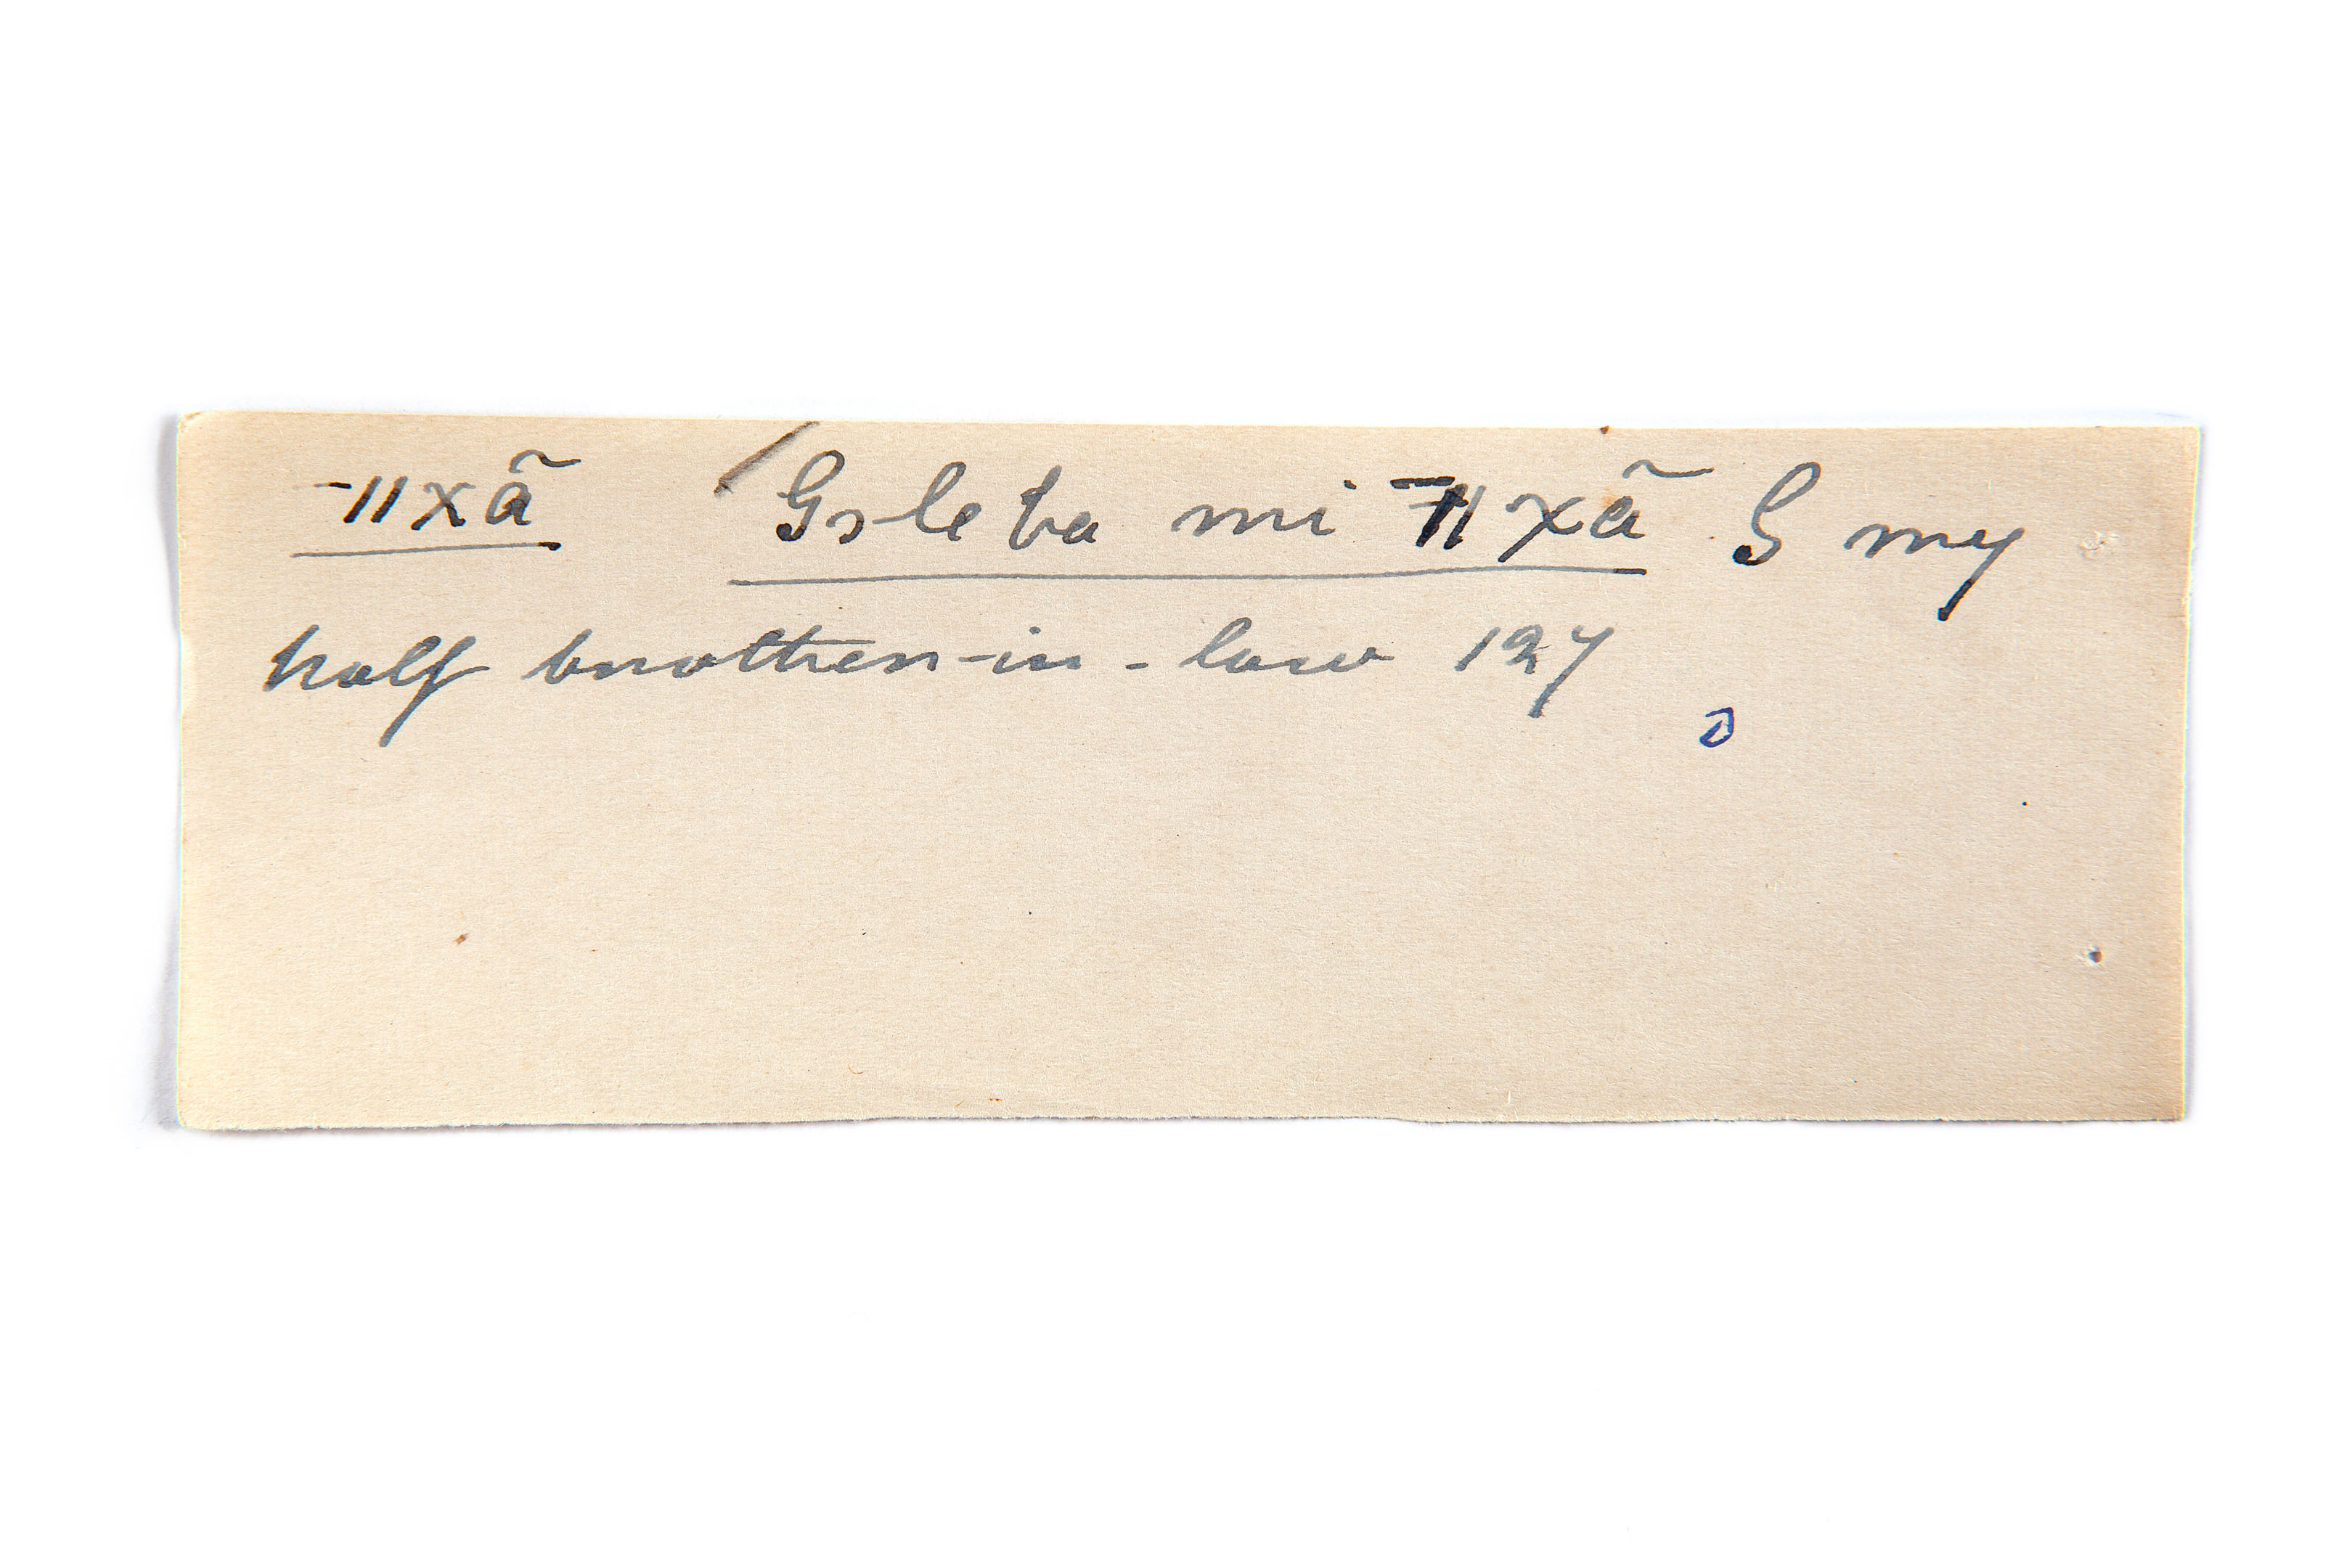 -ǁxã Gɔleba mi -ǁxã G my
half brother-in-law 127